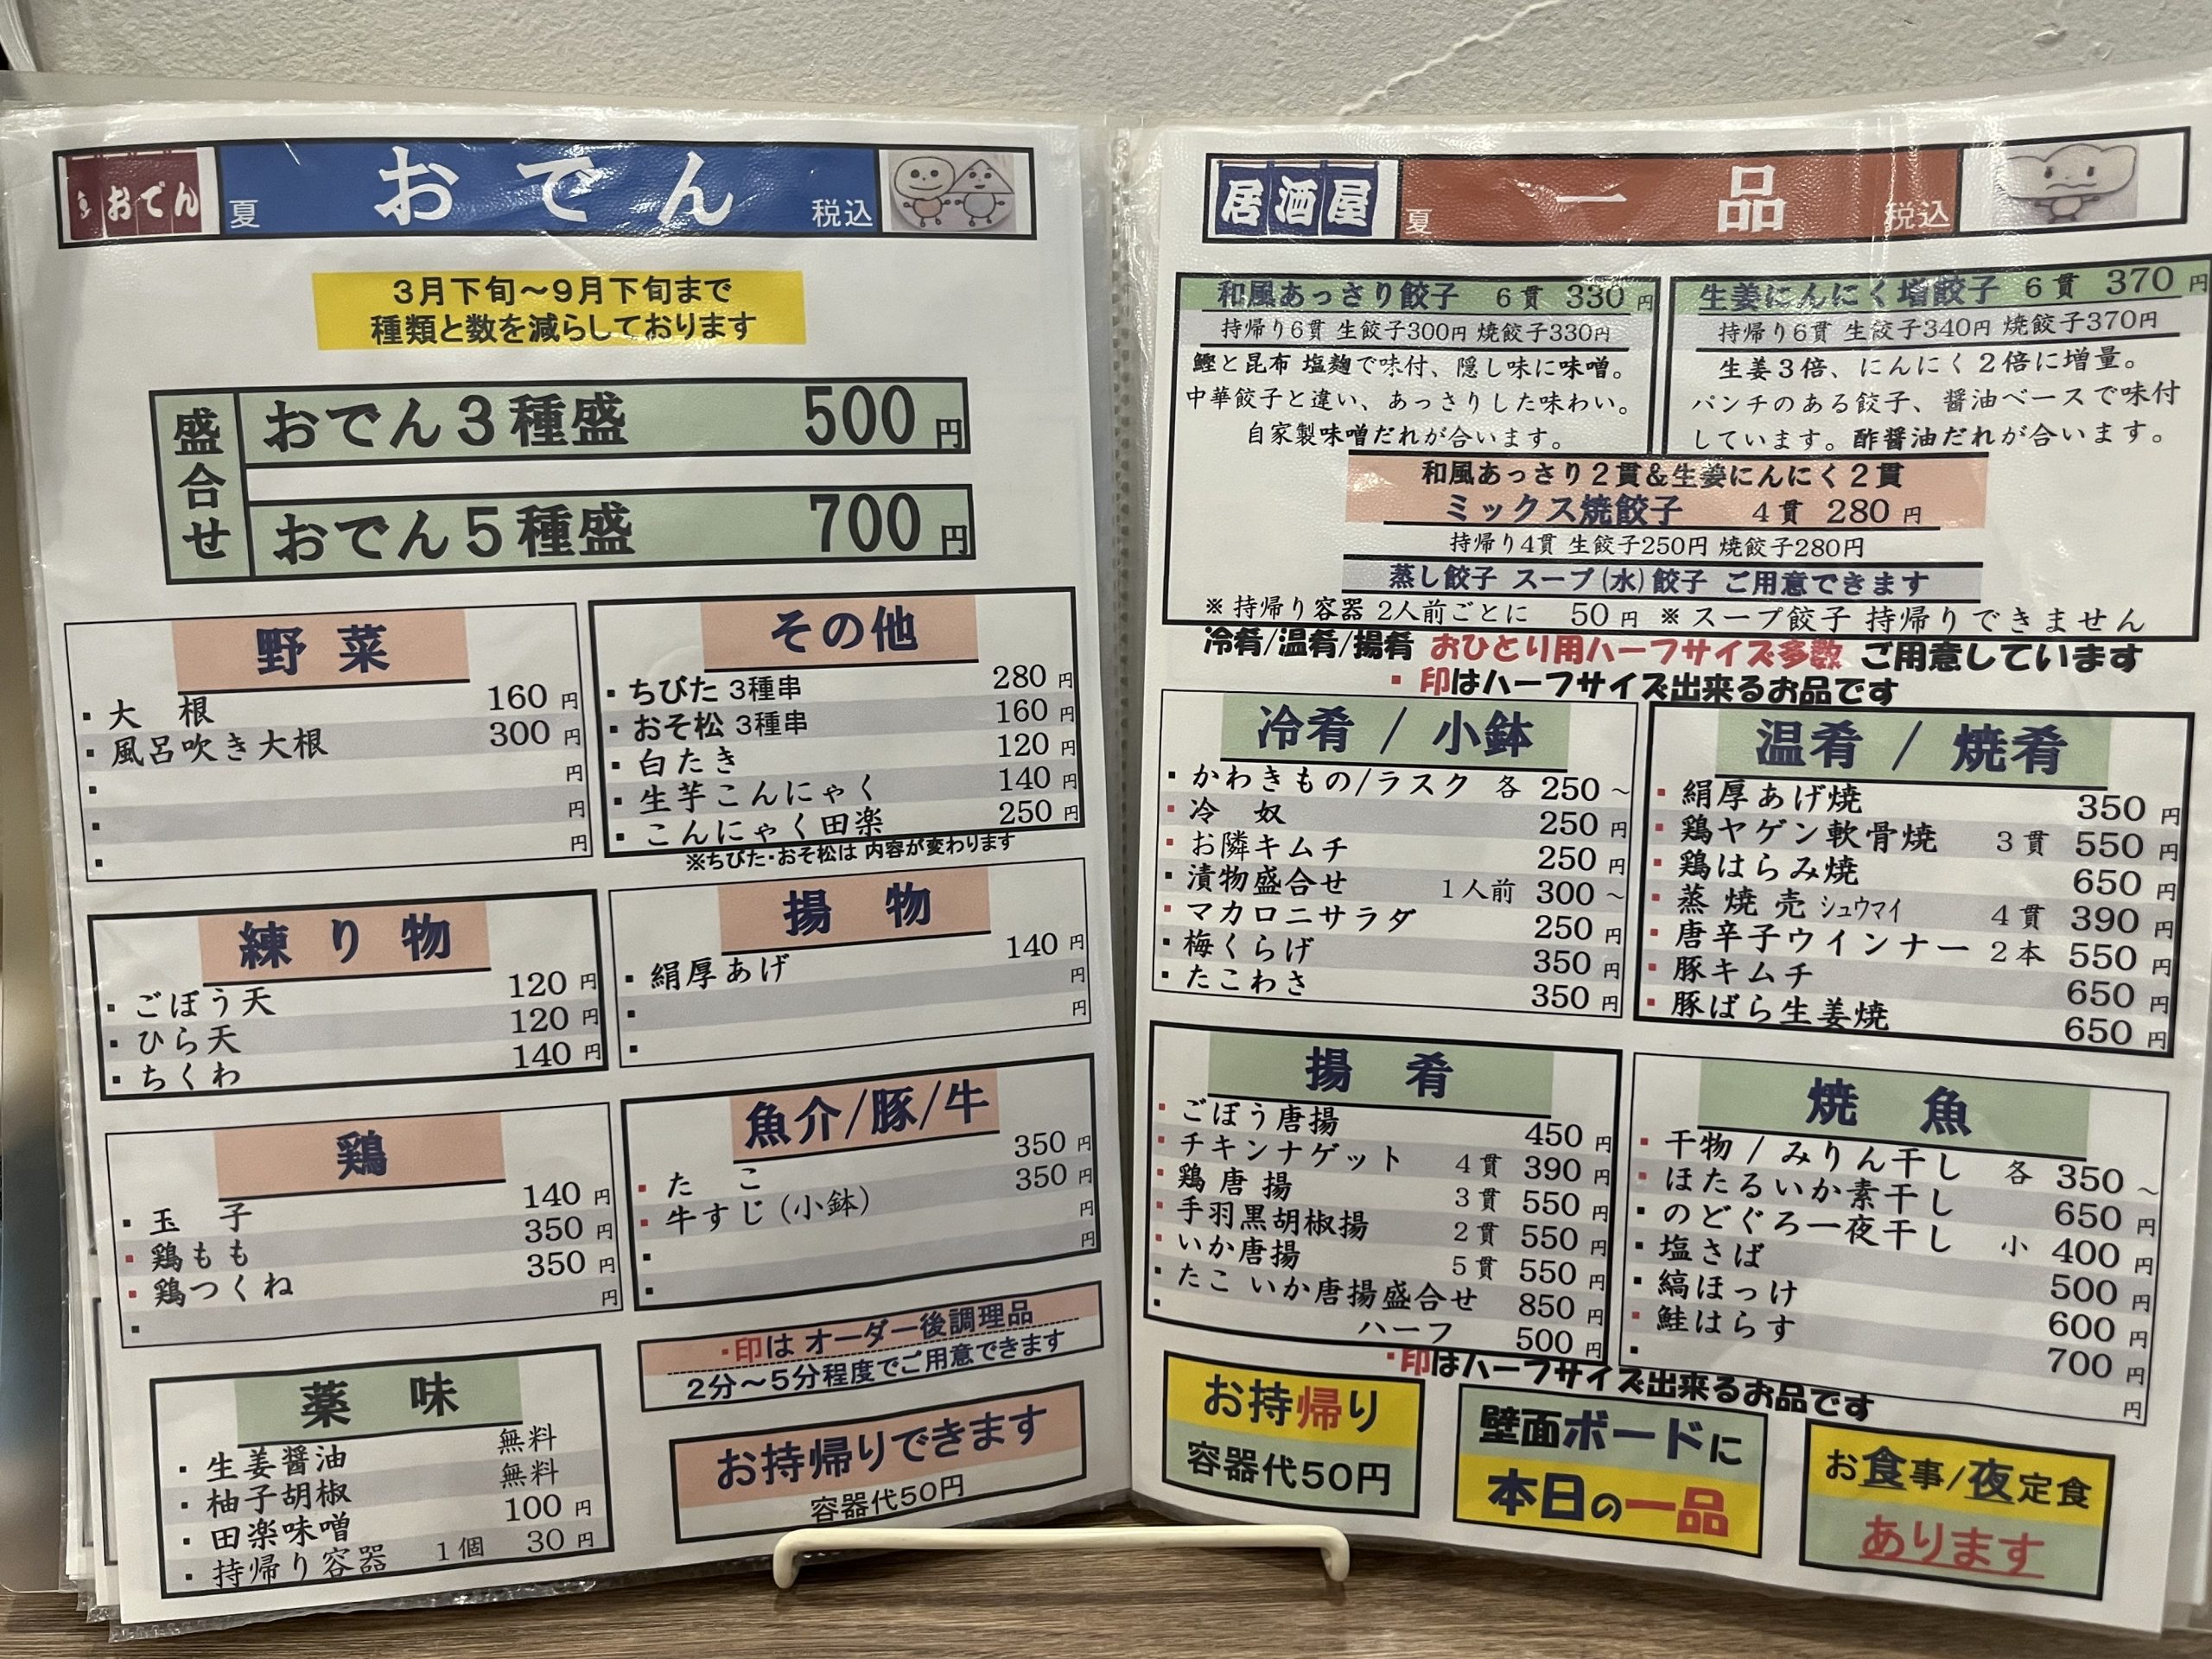 おでん
夏
おでん
税込
3月下旬～9月下旬まで
種類と数を減らしております
盛合せ
おでん3種盛 500円
おでん5種盛 700円
野菜
・大 根 160円
・風呂吹き大根 300円
・ 円
・ 円
・ 円
その他
・ちびた 3種串 280円
・おそ松 3種串 160円
・白たき 120円
・生芋こんにゃく 140円
・こんにゃく田楽 250円
※ちびた・おそ松は 内容が変わります
練り物
・ごぼう天 120円
・ひら天 120円
・ちくわ 140円
揚 物
・絹厚あげ 140円
・ 円
・ 円
鶏
・玉 子 140円
・鶏もも 350円
・鶏つくね 350円
・ 円
魚介/豚/牛
・た こ 350円
・牛すじ(小鉢) 350円
・ 円
・ 円
薬 味
・生姜醤油 無料
・柚子胡椒 無料
・田楽味噌 100円
・持帰り容器 1個 30円
・印は オーダー後調理品
2分～5分程度でご用意できます
お持帰りできます
容器代50円
居酒屋
夏
一品
税込
和風あっさり餃子 6貫 330円
持帰り6貫 生餃子300円 焼餃子330円
鰹と昆布 塩麹で味付、隠し味に味噌。
中華餃子と違い、あっさりした味わい。
自家製味噌だれが合います。
生姜にんにく増餃子 6貫 370円
持帰り6貫 生餃子340円 焼餃子370円
生姜3倍、にんにく2倍に増量。
パンチのある餃子、醤油ベースで味付
しています。酢醤油だれが合います。
和風あっさり2貫&生姜にんにく2貫
ミックス焼餃子 4貫 280円
持帰り4貫 生餃子250円 焼餃子280円
蒸し餃子 スープ(水)餃子 ご用意できます
※持帰り容器 2人前ごとに 50円 ※スープ餃子 持帰りできません
冷肴/温肴/揚肴 おひとり用ハーフサイズ多数 ご用意しています
・印はハーフサイズ出来るお品です
冷肴 / 小鉢
・かわきもの/ラスク 各 250～
・冷 奴 250円
・お隣キムチ 250円
・漬物盛合せ 1人前 300～
・マカロニサラダ 250円
・梅くらげ 350円
・たこわさ 350円
温肴 / 焼肴
・絹厚あげ焼 350円
・鶏ヤゲン軟骨焼 3貫 550円
・鶏はらみ焼 650円
・蒸焼売 シュウマイ 4貫 390円
・唐辛子ウインナー 2本 550円
・豚キムチ 650円
・豚ばら生姜焼 650円
揚 肴
・ごぼう唐揚 450円
・チキンナゲット 4貫 390円
・鶏唐揚 3貫 550円
・手羽黒胡椒揚 2貫 550円
・いか唐揚 5貫 550円
・たこ いか唐揚盛合せ 850円
・ ハーフ 500円
焼 魚
・干物 / みりん干し 各 350～
・ほたるいか素干し 650円
・のどぐろ一夜干し 小 400円
・塩さば 500円
・縞ほっけ 600円
・鮭はらす 700円
・ 円
・印はハーフサイズ出来るお品です
お持帰り
容器代50円
壁面ボードに
本日の一品
お食事/夜定食
あります